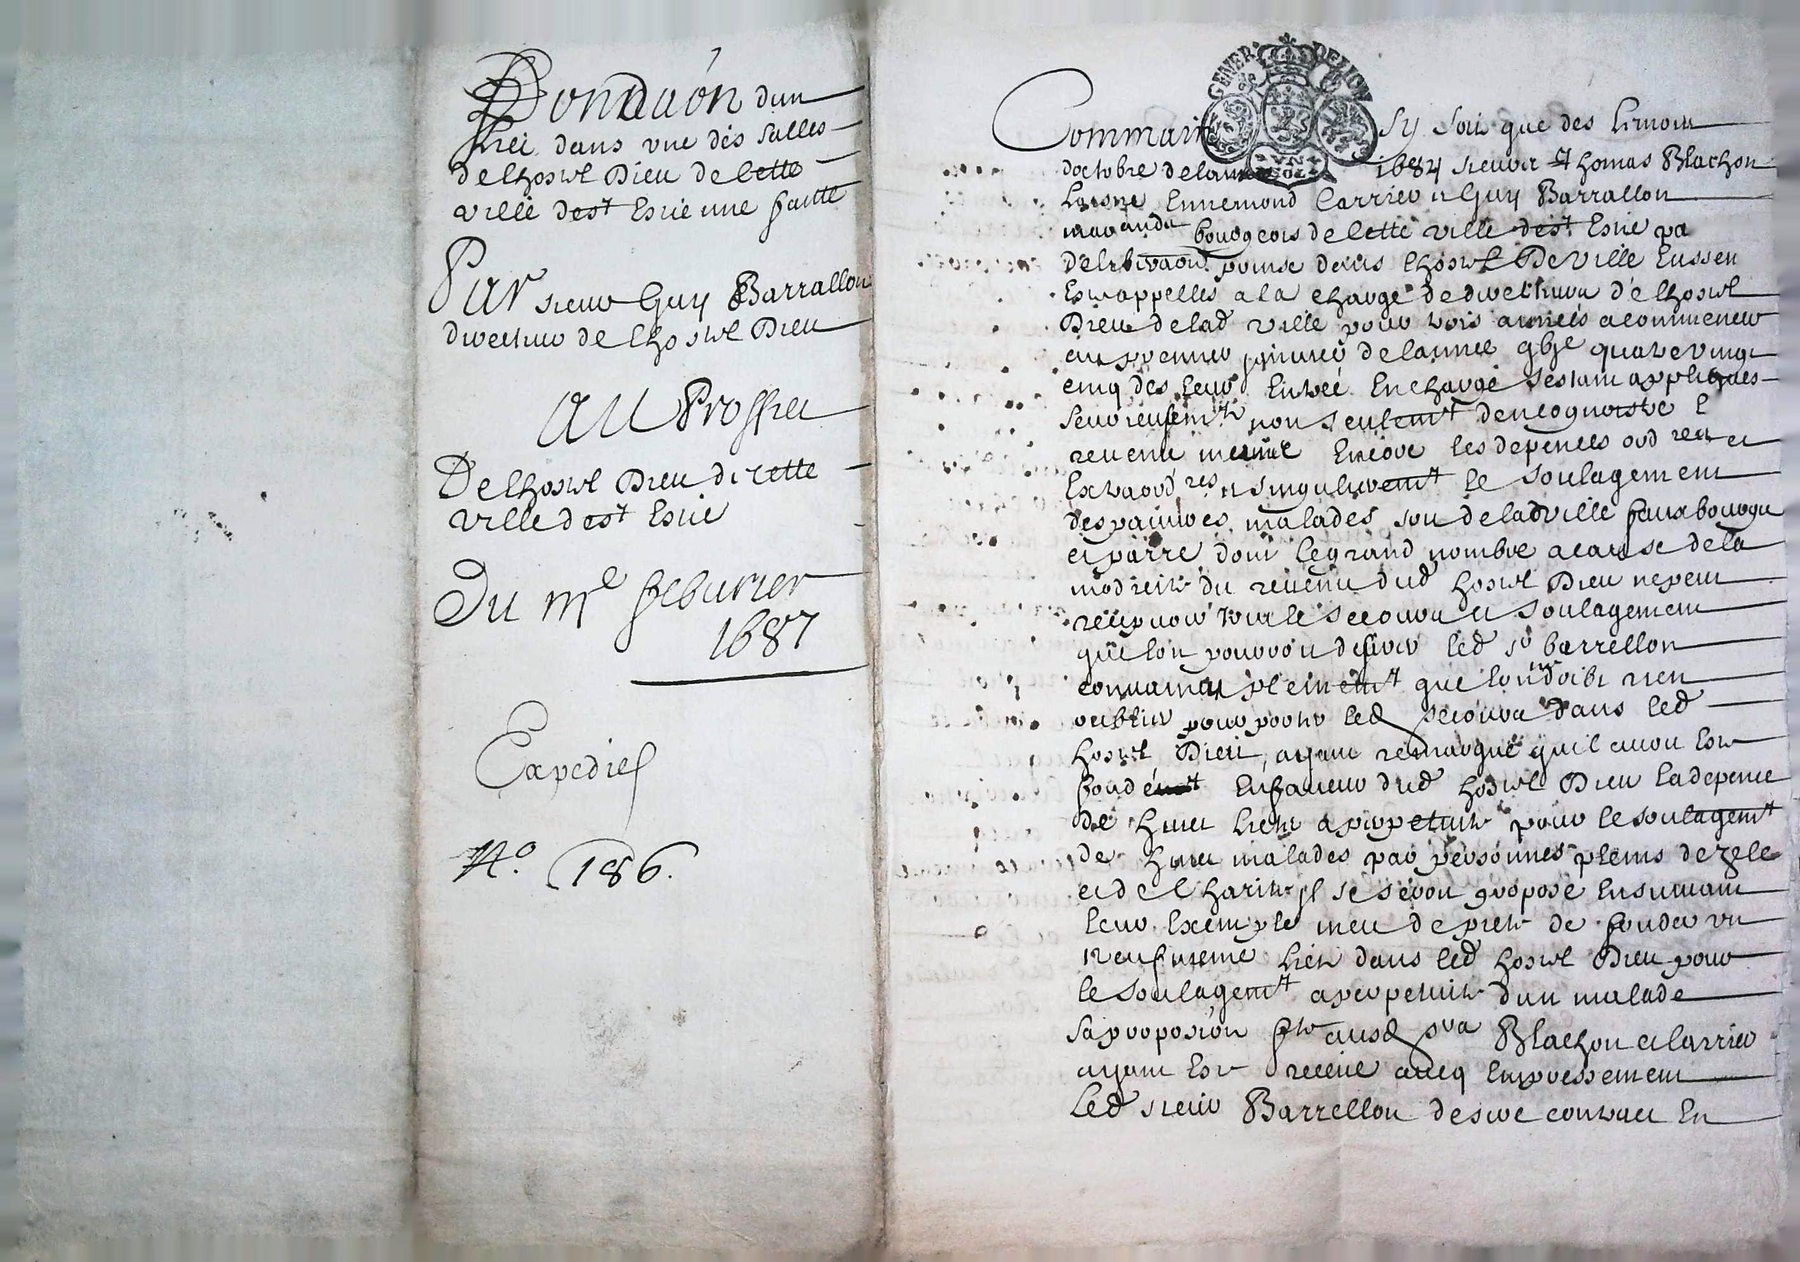 Fondaōn dun
lict dans une des salles
de lhostel Dieu de cette
ville de st Estienne faitte
Par sieur Guy Barrallon
directeur de lhostel Dieu
Au Proffict
De lhostel Dieu de cette
ville de st Estie
Du me febvrier
1687
Expedies
No. 186.
GENER DE LION
Comme ainsy soit que des le mois
doctobre de lannee 1684 sieurs Thomas Blachon
Ennemond Carrier et Guy Barrallon
marchands bourgeois de cette ville de st Estie par
deliberaōn prinse dans lhostel De ville eussent
este appelles a la charge de directeurs de lhostel
Dieu de lad ville pour trois annees a commencer
au premier janvier de lannee gbjc quatre vingt
cinq des leur entree en charge sestant appliques
serieusemt non seulemt de recognoistre le
revenu mesme encore les depences ordres et
extraordres et singulieremt le soulagement
des pauvres malades soit de lad ville fauxbourgs
et parre dont le grand nombre a cause de la
modicite du revenu dud hostel Dieu ne peut
recepvoir tout le secours et soulagement
que lon pourroit desirer led sr barrellon
convaincu pleinemt que lon doibt rien
oublier pour porter led secours dans led
hostel Dieu, ayant remarque quil avoit este
fondé en faveur dud hostel Dieu la depence
de huict licts a perpetuite pour le soulagemt
de huict malades par personnes pleins de zele
et de charite il se seroit propose en suivant
leur exemple de fonder un
neufvieme lict dans led hostel Dieu pour
le soulagemt a perpetuite dun malade
sa proposiōn fte ausd srs Blachon et Carrier
ayant este receue avecq empressement
led sieur Barrellon desire contract en